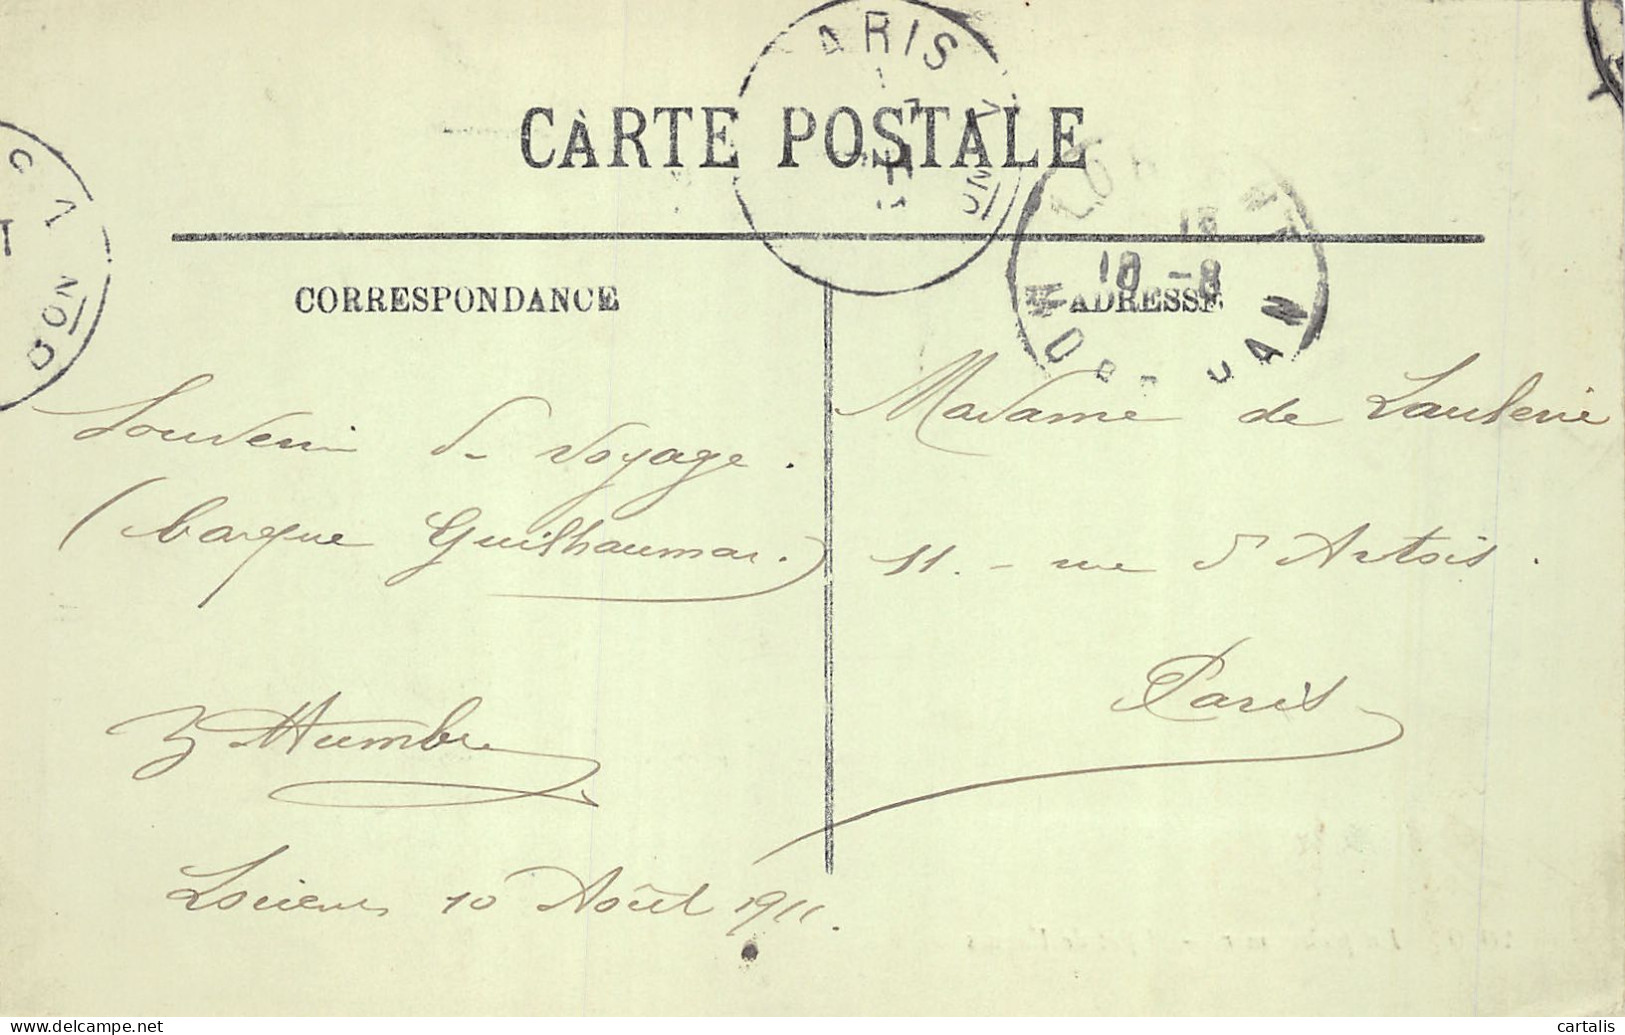 PARIS
CARTE POSTALE
NORD
18
10 -8
CORRESPONDANCE
ADRESSE
Souvenir de voyage.
(barque Guilhaumar.)
Humbre
Lorient 10 Août 1911.
Madame de Lauberie
11. - rue d'Artois.
Paris
cartalis